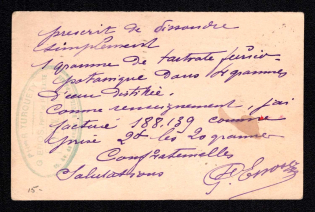 prescrit de dissoudre
simplement
1 gramme de tartrate ferrico-
potassique dans 10 grammes
D'eau distillée.
Comme renseignement, j'ai
facturé 188.139 comme
les 20 grammes
Confraternelles
Salutations
15-